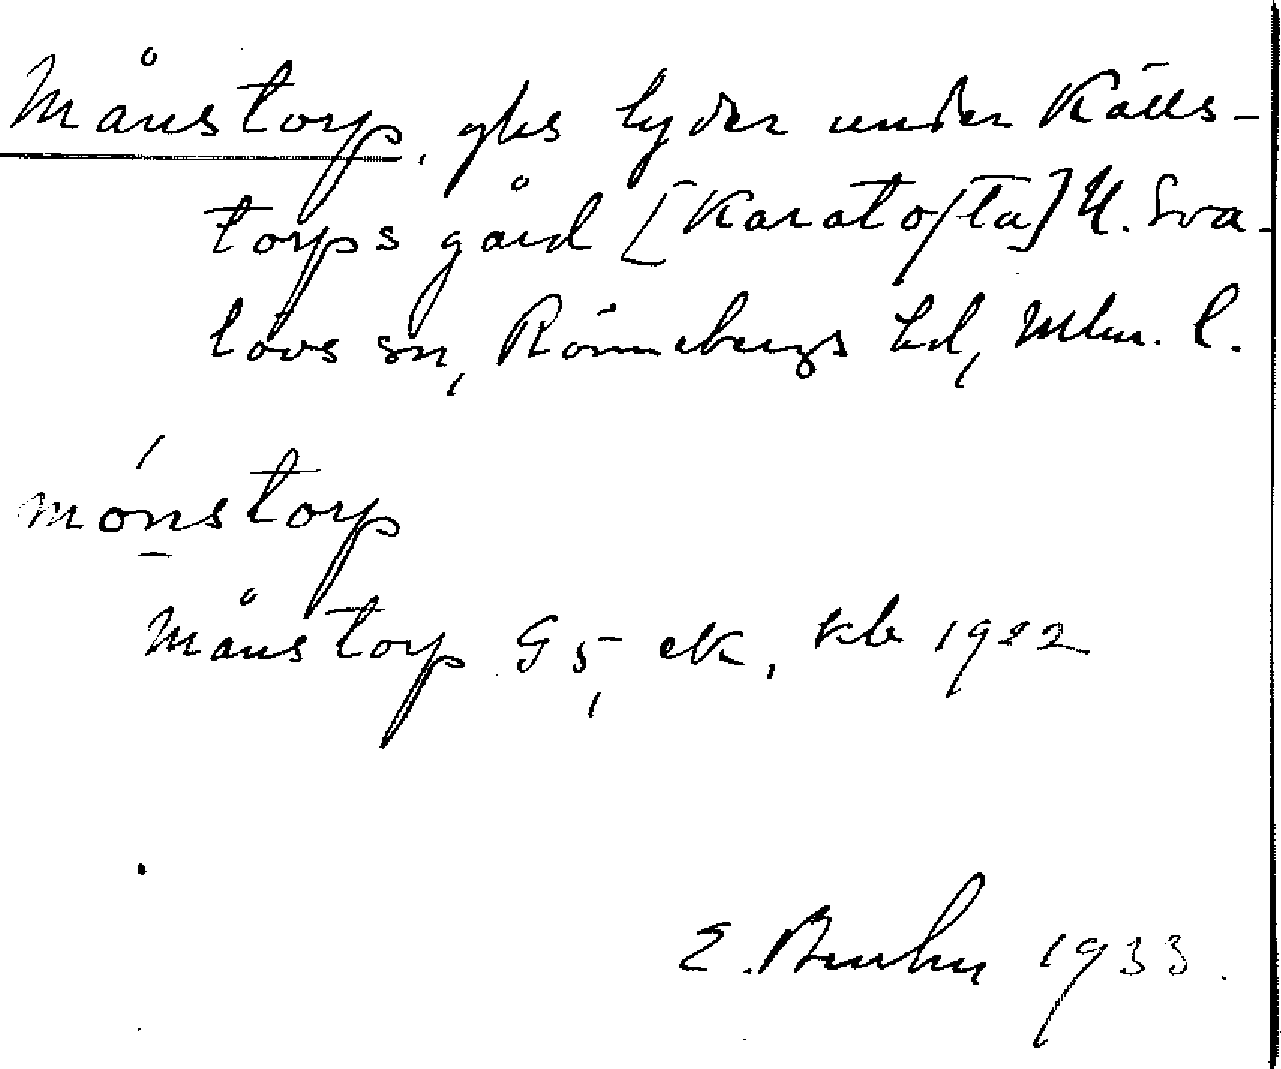 Månstorp, ghs lyder under Källs-
torps gård [Karatofta] N. Sva-
lövs sn, Rönnebergs hd, Mlm. l.
mónstorp
Månstorp G5, ek, kb 1922
E. 1933.